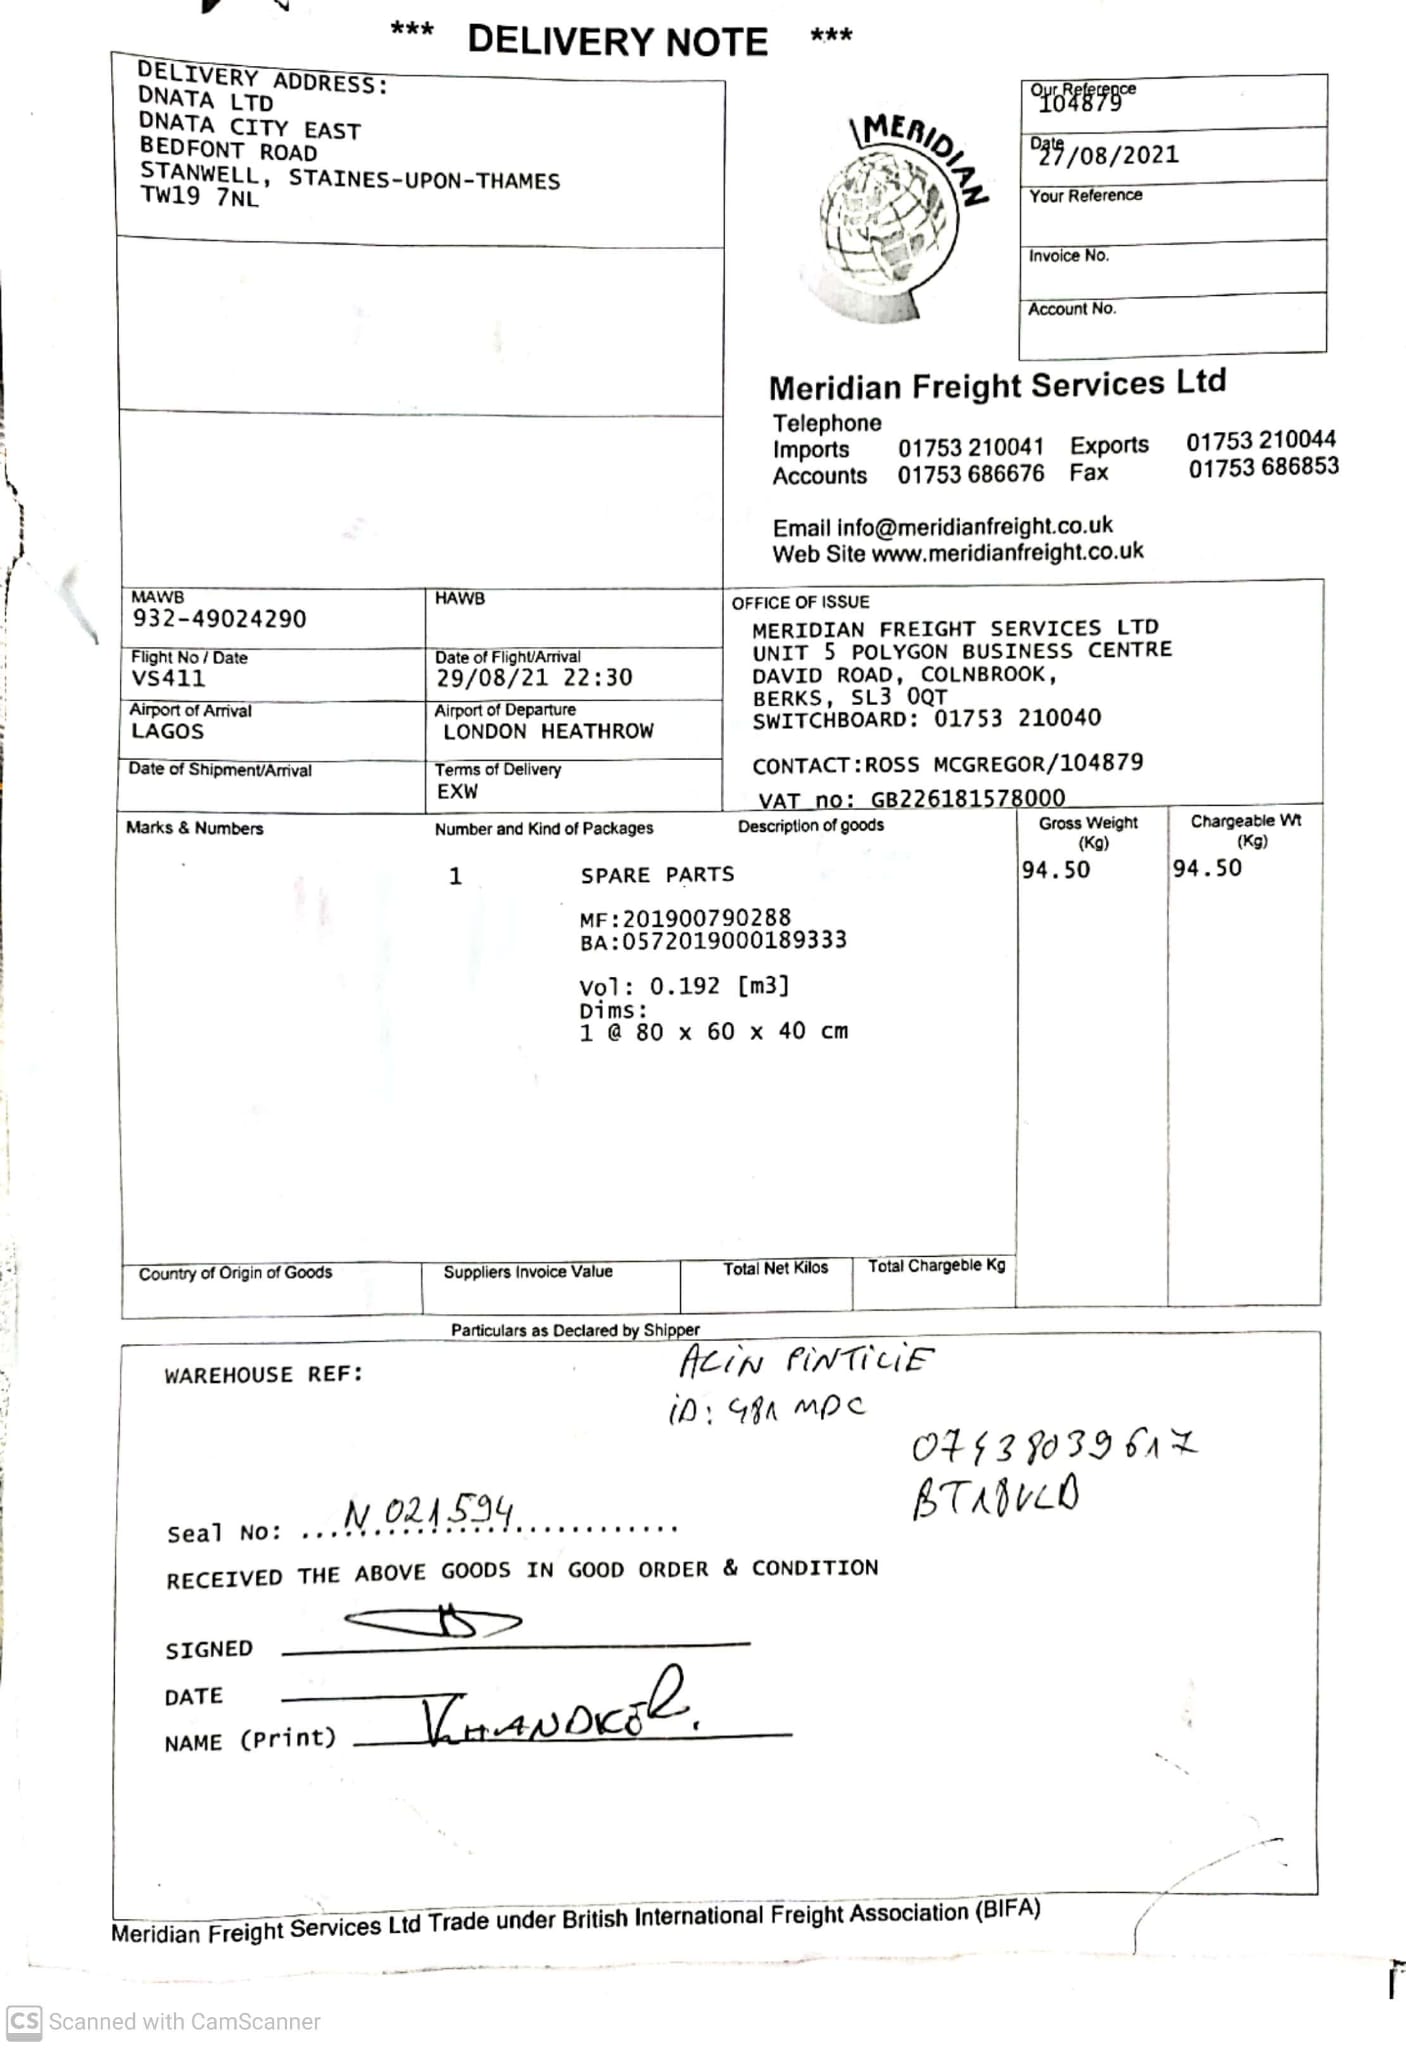 *** DELIVERY NOTE ***
DELIVERY ADDRESS:
DNATA LTD
DNATA CITY EAST
BEDFONT ROAD
STANWELL, STAINES-UPON-THAMES
TW19 7NL
MERIDIAN
Our Reference
104879
Date
27/08/2021
Your Reference
Invoice No.
Account No.
Meridian Freight Services Ltd
Telephone
Imports 01753 210041 Exports 01753 210044
Accounts 01753 686676 Fax 01753 686853
Email info@meridianfreight.co.uk
Web Site www.meridianfreight.co.uk
MAWB
932-49024290
HAWB
Flight No / Date
VS411
Date of Flight/Arrival
29/08/21 22:30
Airport of Arrival
LAGOS
Airport of Departure
LONDON HEATHROW
Date of Shipment/Arrival
Terms of Delivery
EXW
OFFICE OF ISSUE
MERIDIAN FREIGHT SERVICES LTD
UNIT 5 POLYGON BUSINESS CENTRE
DAVID ROAD, COLNBROOK,
BERKS, SL3 0QT
SWITCHBOARD: 01753 210040
CONTACT:ROSS MCGREGOR/104879
VAT no: GB226181578000
Marks & Numbers
Number and Kind of Packages
Description of goods
Gross Weight
(Kg)
Chargeable Wt
(Kg)
1 SPARE PARTS 94.50 94.50
MF:201900790288
BA:0572019000189333
Vol: 0.192 [m3]
Dims:
1 @ 80 x 60 x 40 cm
Country of Origin of Goods
Suppliers Invoice Value
Total Net Kilos
Total Chargeble Kg
Particulars as Declared by Shipper
WAREHOUSE REF:
PINTILIE
iD: MDC
Seal No: N 021594
RECEIVED THE ABOVE GOODS IN GOOD ORDER & CONDITION
SIGNED
DATE
NAME (Print) KHANDKER.
Meridian Freight Services Ltd Trade under British International Freight Association (BIFA)
CS Scanned with CamScanner